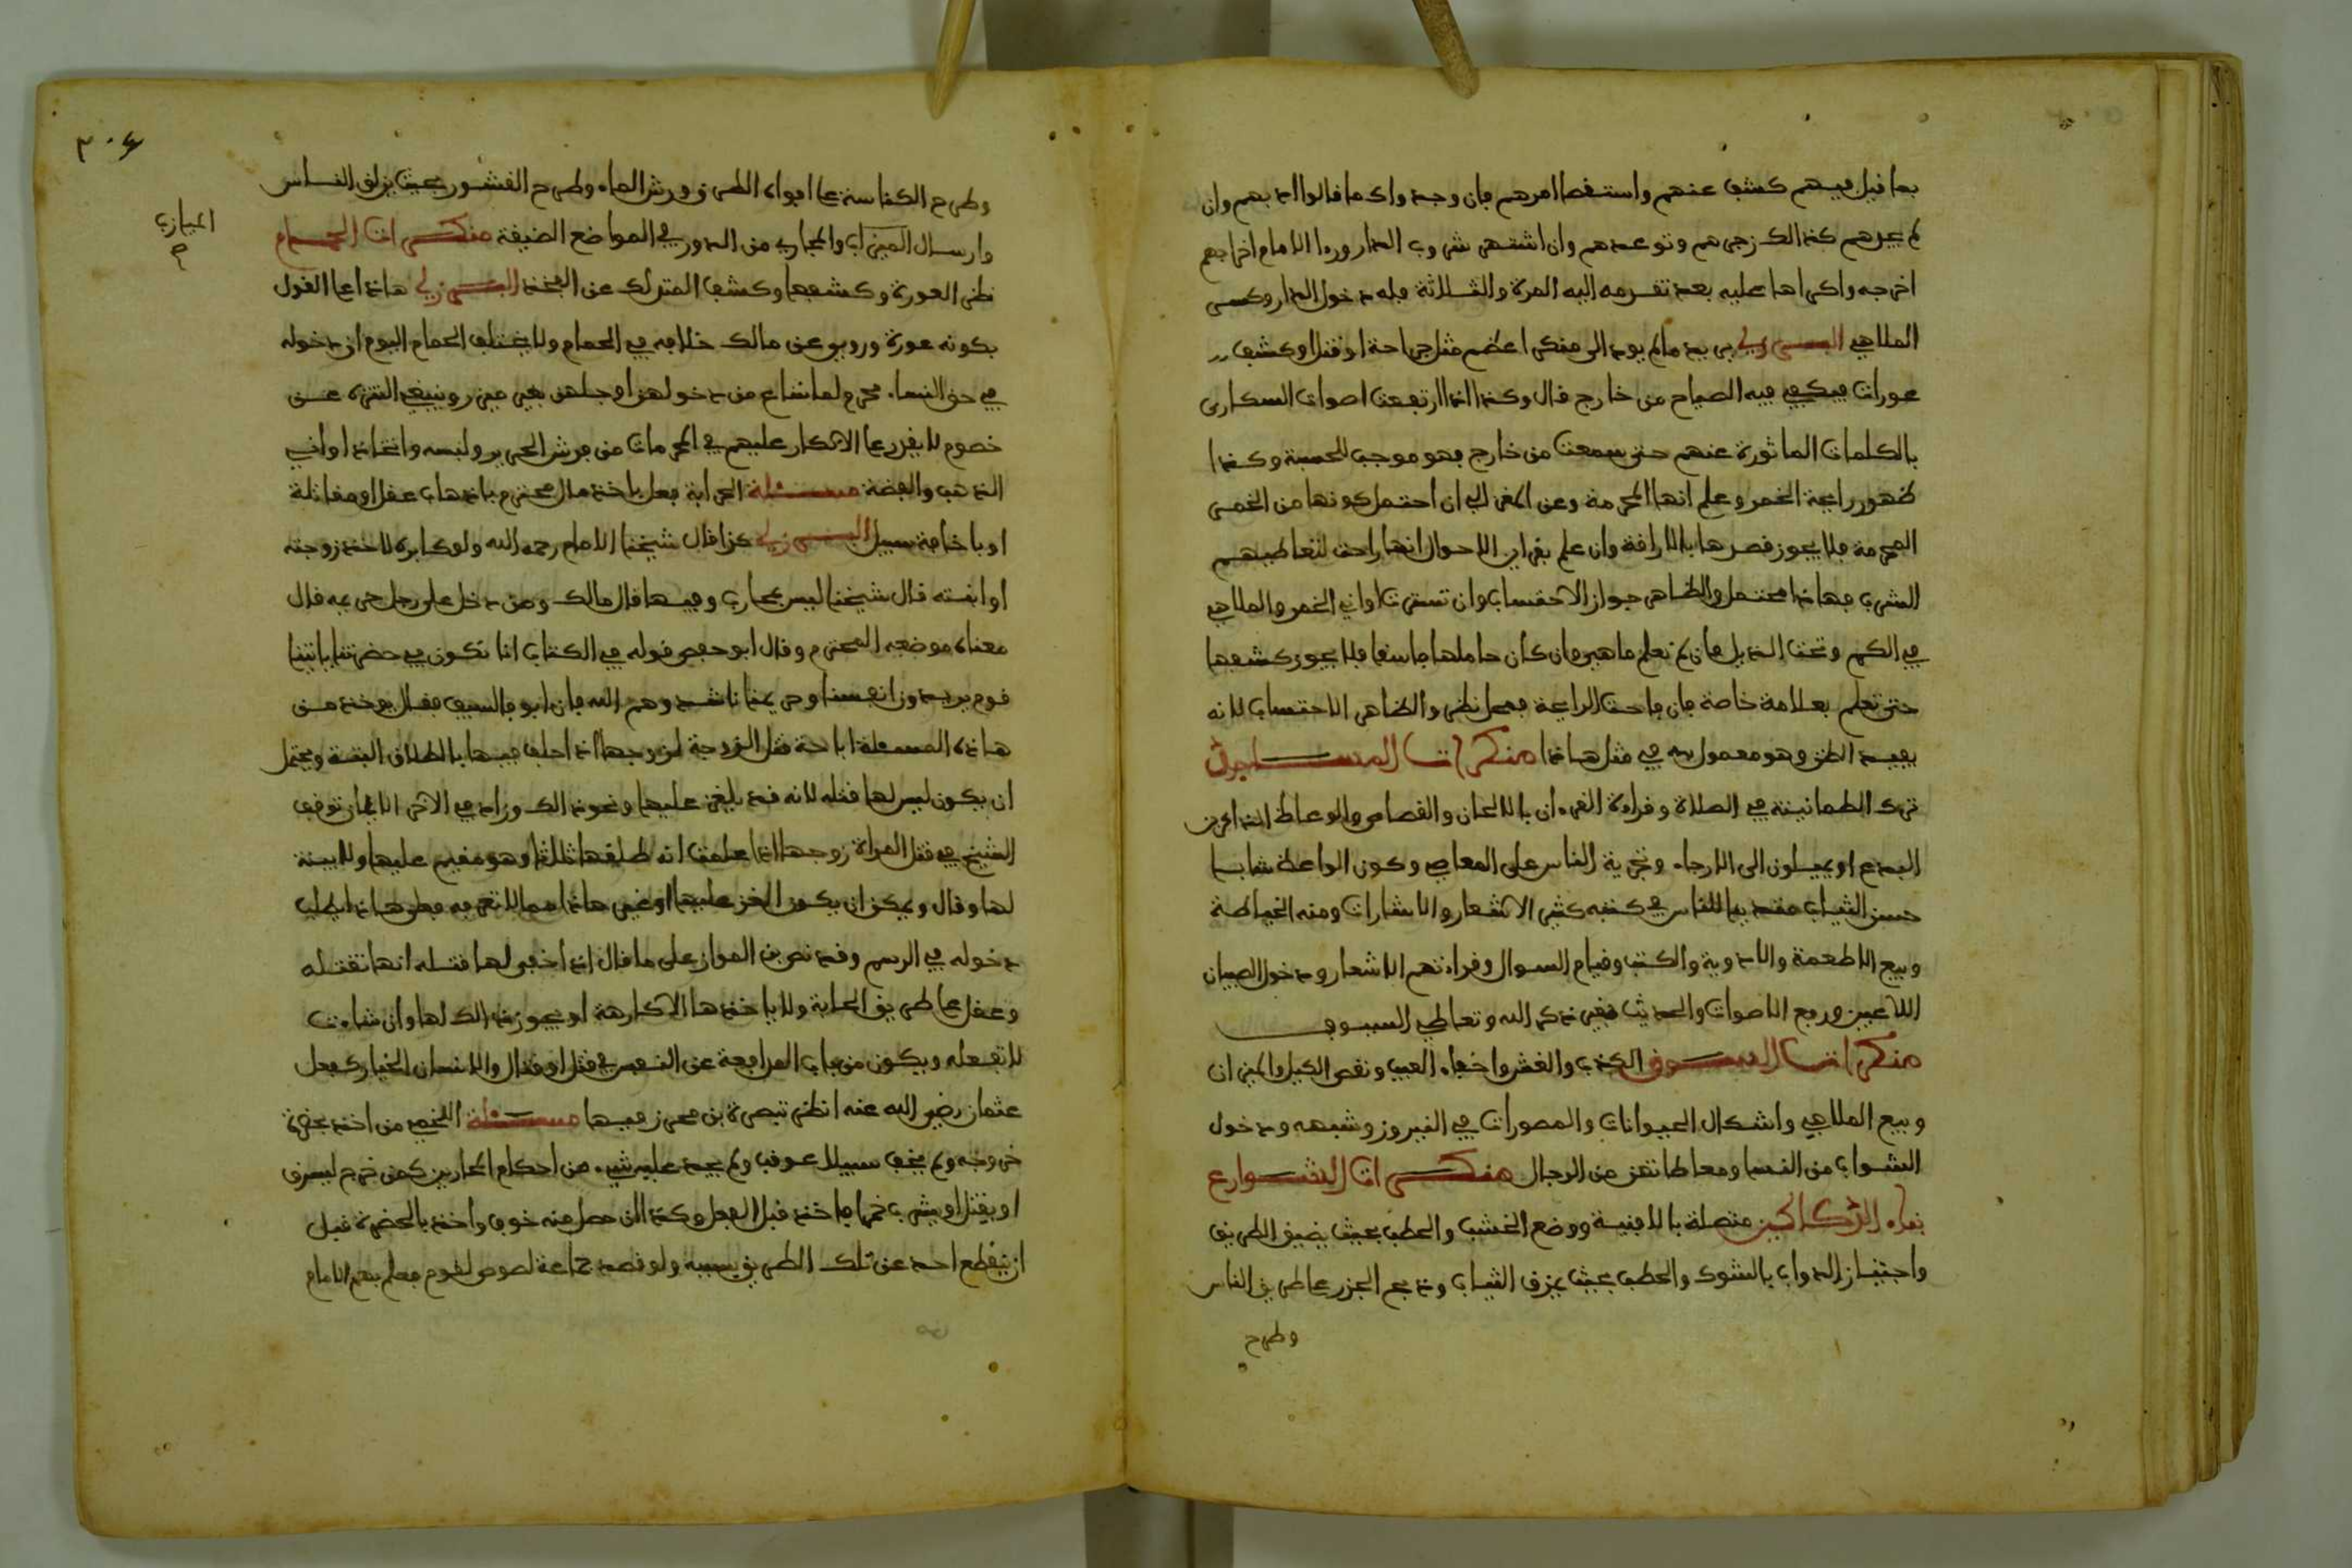 بما قيل فيهم كشف عنهم واستقصا امرهم فان وجد واك ما قالوا اد بهم وان
لم يجدهم كذالك زجرهم وتوعدهم وان اشتهر شروب الدار ورءا الامام اخراجهم
اخرجه واكراها عليه بعد تقدمه اليه المرة والثلاثة فله دخول الدار وكسر
الملاهي البرزلي يريد مالم يود الى منكر اعظم مثل جراحة او قتل او كشف
عورات فيكفي فيه الصياح من خارج قال وكذا اذا ارتفعت اصوات السكارى
بالكلمات الماثورة عنهم حتى سمعت من خارج فهو موجب للحسبة وكذا
ظهور رايحة الخمر وعلم انها المحرمة وعن الغزالي ان احتمل كونها من الخمر
المحرمة فلا يجوز قصرها بالاراقة وان علم بقراين الاحوال انها راحت لتعاطيهم
الشرب فهاذا محتمل والظاهر جواز الاحتساب وان تسترت اواني الخمر والملاهي
في الكم وتحت الذيل فان لم تعلم ما هي وان كان حاملها فاسقا فلا يجوز كشفها
حتى تعلم بعلامة خاصة فان فاحت الرايحة فمحل نظر والظاهر الاحتساب لانه
يفيد الظن وهو معمول به في مثل هاذا منكرات المساجد
ترك الطمانينة في الصلاة وقراءة القرءان بالالحان والقصاص والوعاظ الذاكرين
البدع او يميلون الى الارجاء وتجرية الناس على المعاصي وكون الواعظ شابا
حسن الثياب متزينا للناس في كتبه كثير الاشعار والاشارات ومنه الخياطة
وبيع الاطعمة والادوية والكتب وقيام السوال وقراءتهم الاشعار ودخول الصبيان
اللاعبين ورفع الاصوات والحديث بغير ذكر الله وتعاطي السيوف
منكرات السوق الكذب والغش واخفاء العيب ونقص الكيل والميزان
وبيع الملاهي واشكال الحيوانات والمصورات في النيروز وشبهه ودخول
الشواب من النسا ومعاطاتهن من الرجال منكرات الشوارع
بناء الدكاكين متصلة بالابنية ووضع الخشب والحطب بحيث يضيق الطريق
واجتياز الدواب بالشوك والحطب بحيث يمزق الثياب وذبح الجزر على طريق الناس
وطرح
٣٠٤
وطرح الكناسة على ابواب الطرق ورش الماء وطرح القشور بحيث يزلق الناس
وارسال الميزاب والمجاري من الدور في المواضع الضيقة منكرات الحمام
الميازب
نظر العورة وكشفها وكشف المتدلك عن الفخذ البرزلي هاذا على القول
بكونه عورة وروي عن مالك خلافه في الحمام ولا يختلف الحمام اليوم ان دخوله
في حق النساء محرم لما شاع من دخولهن اجلهن بغير ميزر وينبغي التنزه عن
خصوم لا يقدر على الانكار عليهم في المحرمات من فرش الحرير ولبسه واتخاذ اواني
الذهب والفضة مسئلة الحرابة فعل ياخذ مال محترم باذهاب عقل او مقاتلة
او باخافة سبيل البرزلي كذا قال شيخنا الامام رحمه الله ولو كابره لاخذ زوجته
او ابنته قال شيخنا ليس بمحارب وفيها قال مالك ومن دخل على رجل حريمه قال
معناه موضعه المحترم وقال ابو حفص قوله في الكتاب انا نكون في حضرتنا ياتينا
قوم يريدون انفسنا وحريمنا ناشدوهم الله فان ابو فالسيف فقال يوخذ من
هاذه المسئلة اباحة قتل الزوجة لزوجها اذا احلف فيها بالطلاق البتة ويحتمل
ان يكون ليس لها قتله لانه قد يلغز عليها ونحو ذالك وزاد في الاخر الايمان توقف
الشيخ في قتل المراة زوجها اذا علمت انه طلقها ثلاثا وهو مقيم عليها ولا بينة
لها وقال ويمكن ان يكون الغز عليها او غير هاذا مما لا تعرفه فطر هاذا يطلب
دخوله في الرسم وقد نص بن المواز على ما قال اذا خفي لها قتله انها تقتله
وعقل على طريق الحرابة ولا ياخذها الا كارهة او يجوز ذالك لها وان شاءت
لا تفعله ويكون من باب المدافعة عن النفس في قتل او قتال والانسان الخيار كفعل
عثمان رضي الله عنه انظر تبصرة بن محرز فيها مسئلة اللخمي من اخذ بحضرة
خروجه ولم يخف سبيلا عوقب ولم يجر عليه شيء من احكام المحاربين كمن خرج ليسرق
او يقتل او يشرب خمرا فاخذ قبل الفعل وكذا ان حصل منه خوف واخذ بالحضرة قبل
ان ينقطع احد عن تلك الطريق بسببه ولو قصد جماعة لصوص لقوم فعلم بهم الامام